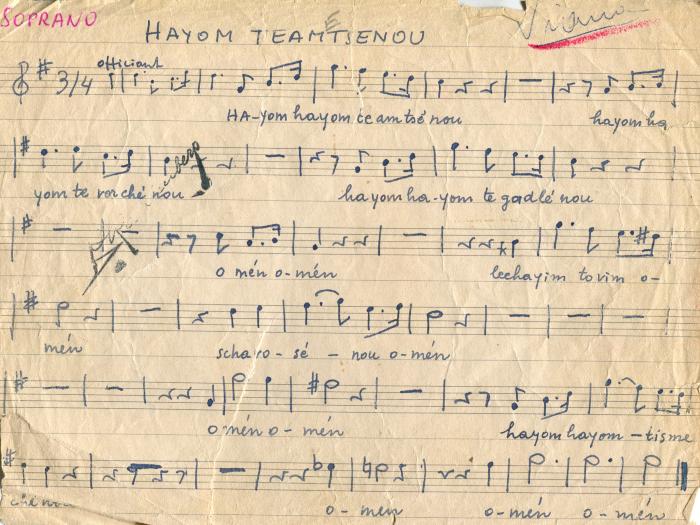 SOPRANO
HAYOM TEAMTSENOU
officiant
3/4
HA-yom hayom te am tsé nou hayom ha
yom te varché nou hayom ha-yom te gadlé nou
o mén o-mén lechayim tovim o-
mén scha vo-sé - nou o-mén
o mén o-mén hayom hayom - tisme
o-men o-mén o-mén